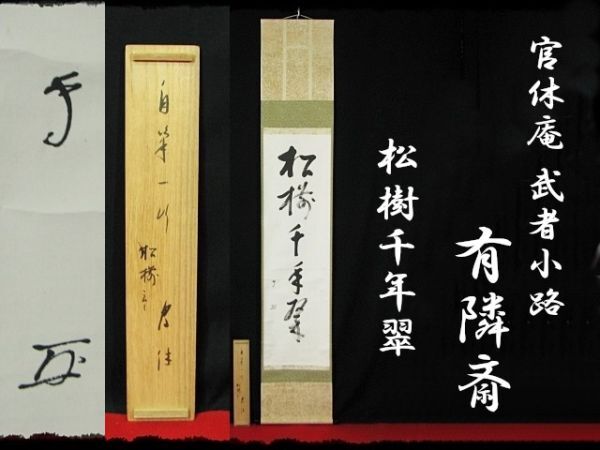 官休庵 武者小路
有隣斎
松樹千年翠
松樹千年翠
自筆一行
松樹云々